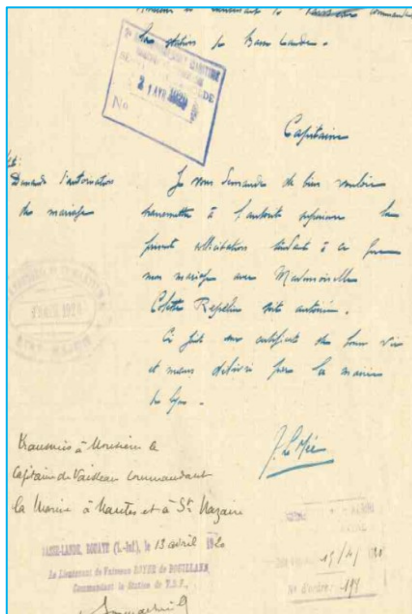 Monsieur le Lieutenant de Vaisseau commandant
la station de Basse Lande.
ARRONDISSEMENT MARITIME
21 AVR 1920
No
Capitaine
Demande d'autorisation
de mariage
Je vous demande de bien vouloir
transmettre à l'autorité supérieure la
présente sollicitation tendant à ce que
mon mariage avec Mademoiselle
Colette Repelin soit autorisé.
Ci joint un certificat de bonne vie
et mœurs délivré par la mairie
de Lyon.
ETAT MAJOR
J. Le Mée
Transmis à Monsieur le
Capitaine de Vaisseau Commandant
la Marine à Nantes et à St Nazaire
BASSE-LANDE, BOUAYE (L.-Inf.), le 13 avril 1920
Le Lieutenant de Vaisseau ROYER de BOUILLANE,
Commandant la Station de T.S.F.,
15/4/20
No d'ordre: 191